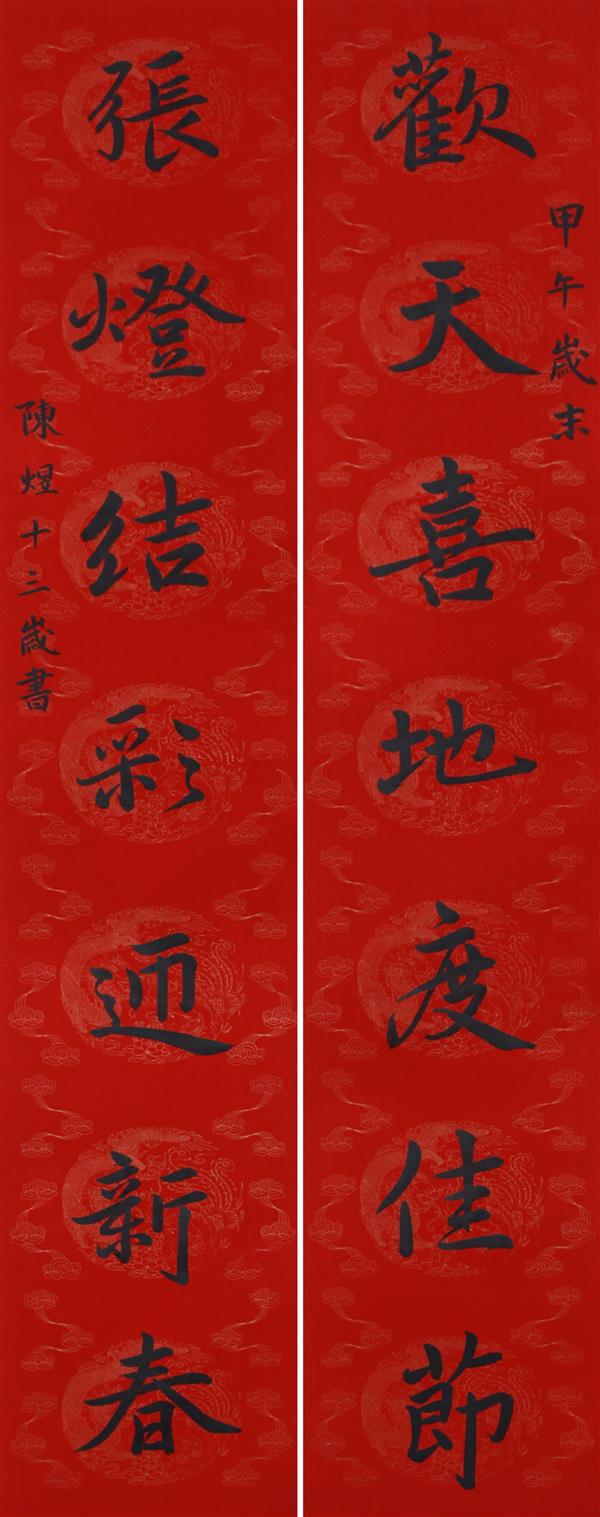 歡天喜地度佳節
甲午歲末
張燈結彩迎新春
陳煜十三歲書